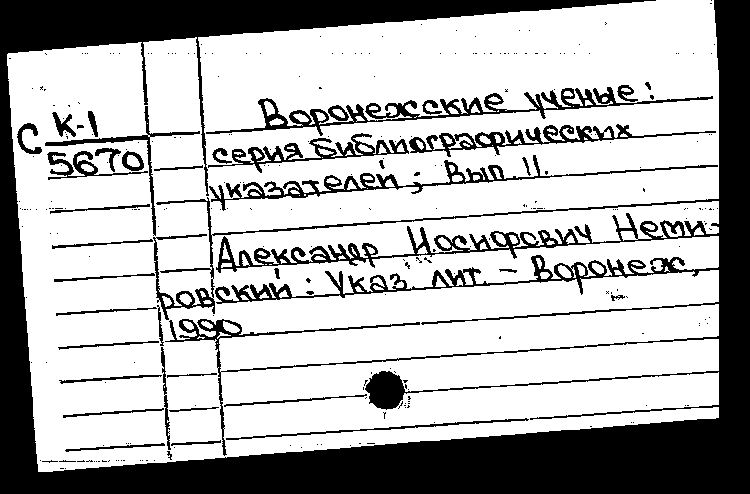 Воронежские ученые:
С К-1
5670
серия библиографических
указателей; Вып. 11.
Александр Иосифович Неми-
ровский: Указ. лит. - Воронеж,
1990.